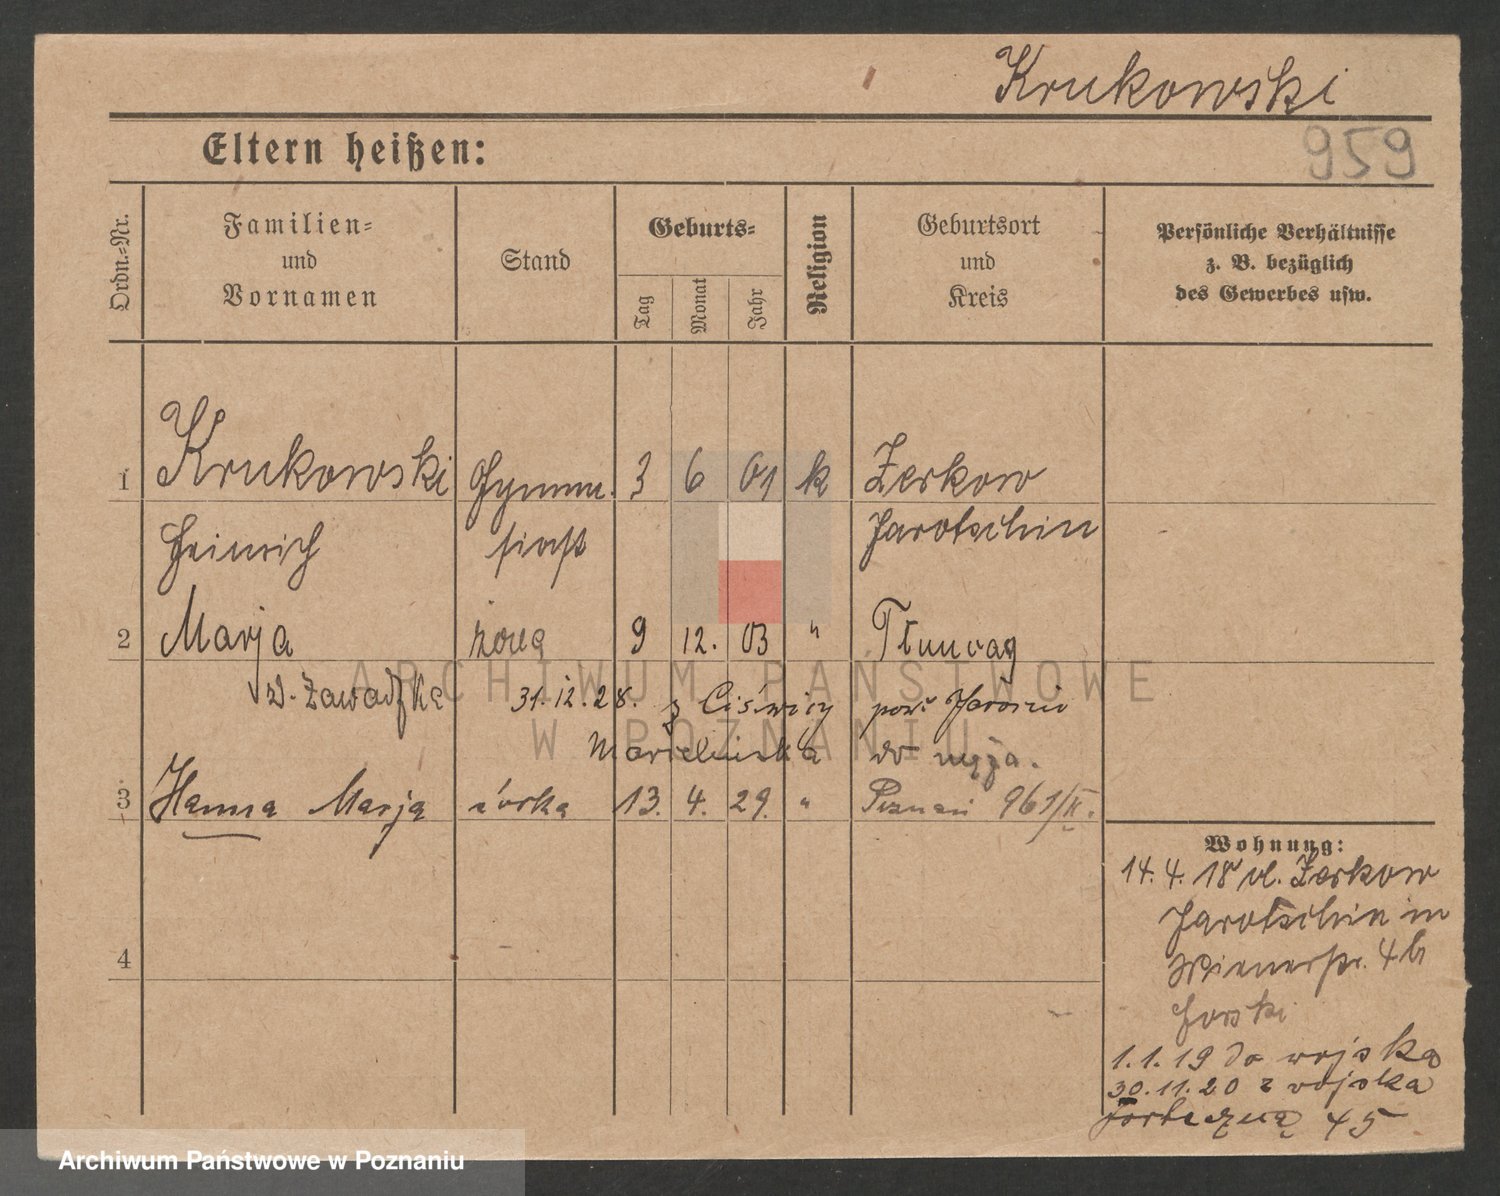 Krukowski
959
Eltern heißen:
Ordn.-Nr.
Familien-
und
Vornamen
Stand
Geburts-
Tag
Monat
Jahr
Religion
Geburtsort
und
Kreis
Persönliche Verhältnisse
z. B. bezüglich
des Gewerbes usw.
1 Krukowski Gymna- 3 6 01 k Zerkow
Heinrich siast Jarotschin
2 Marja żona 9 12. 03 "
z d. Zawadzka 31.12.28. z Ciświcy pow. Jarocin
do męża.
3 Hanna Marja córka 13. 4. 29. " Poznań 961/II.
4
Wohnung:
14. 4. 18 vl. Zerkow
Jarotschin in
Wienerstr. 4b
Gorski
1.1.19 do wojska
30.11.20 z wojska
Forteczna 45
ARCHIWUM PAŃSTWOWE
W POZNANIU
Archiwum Państwowe w Poznaniu